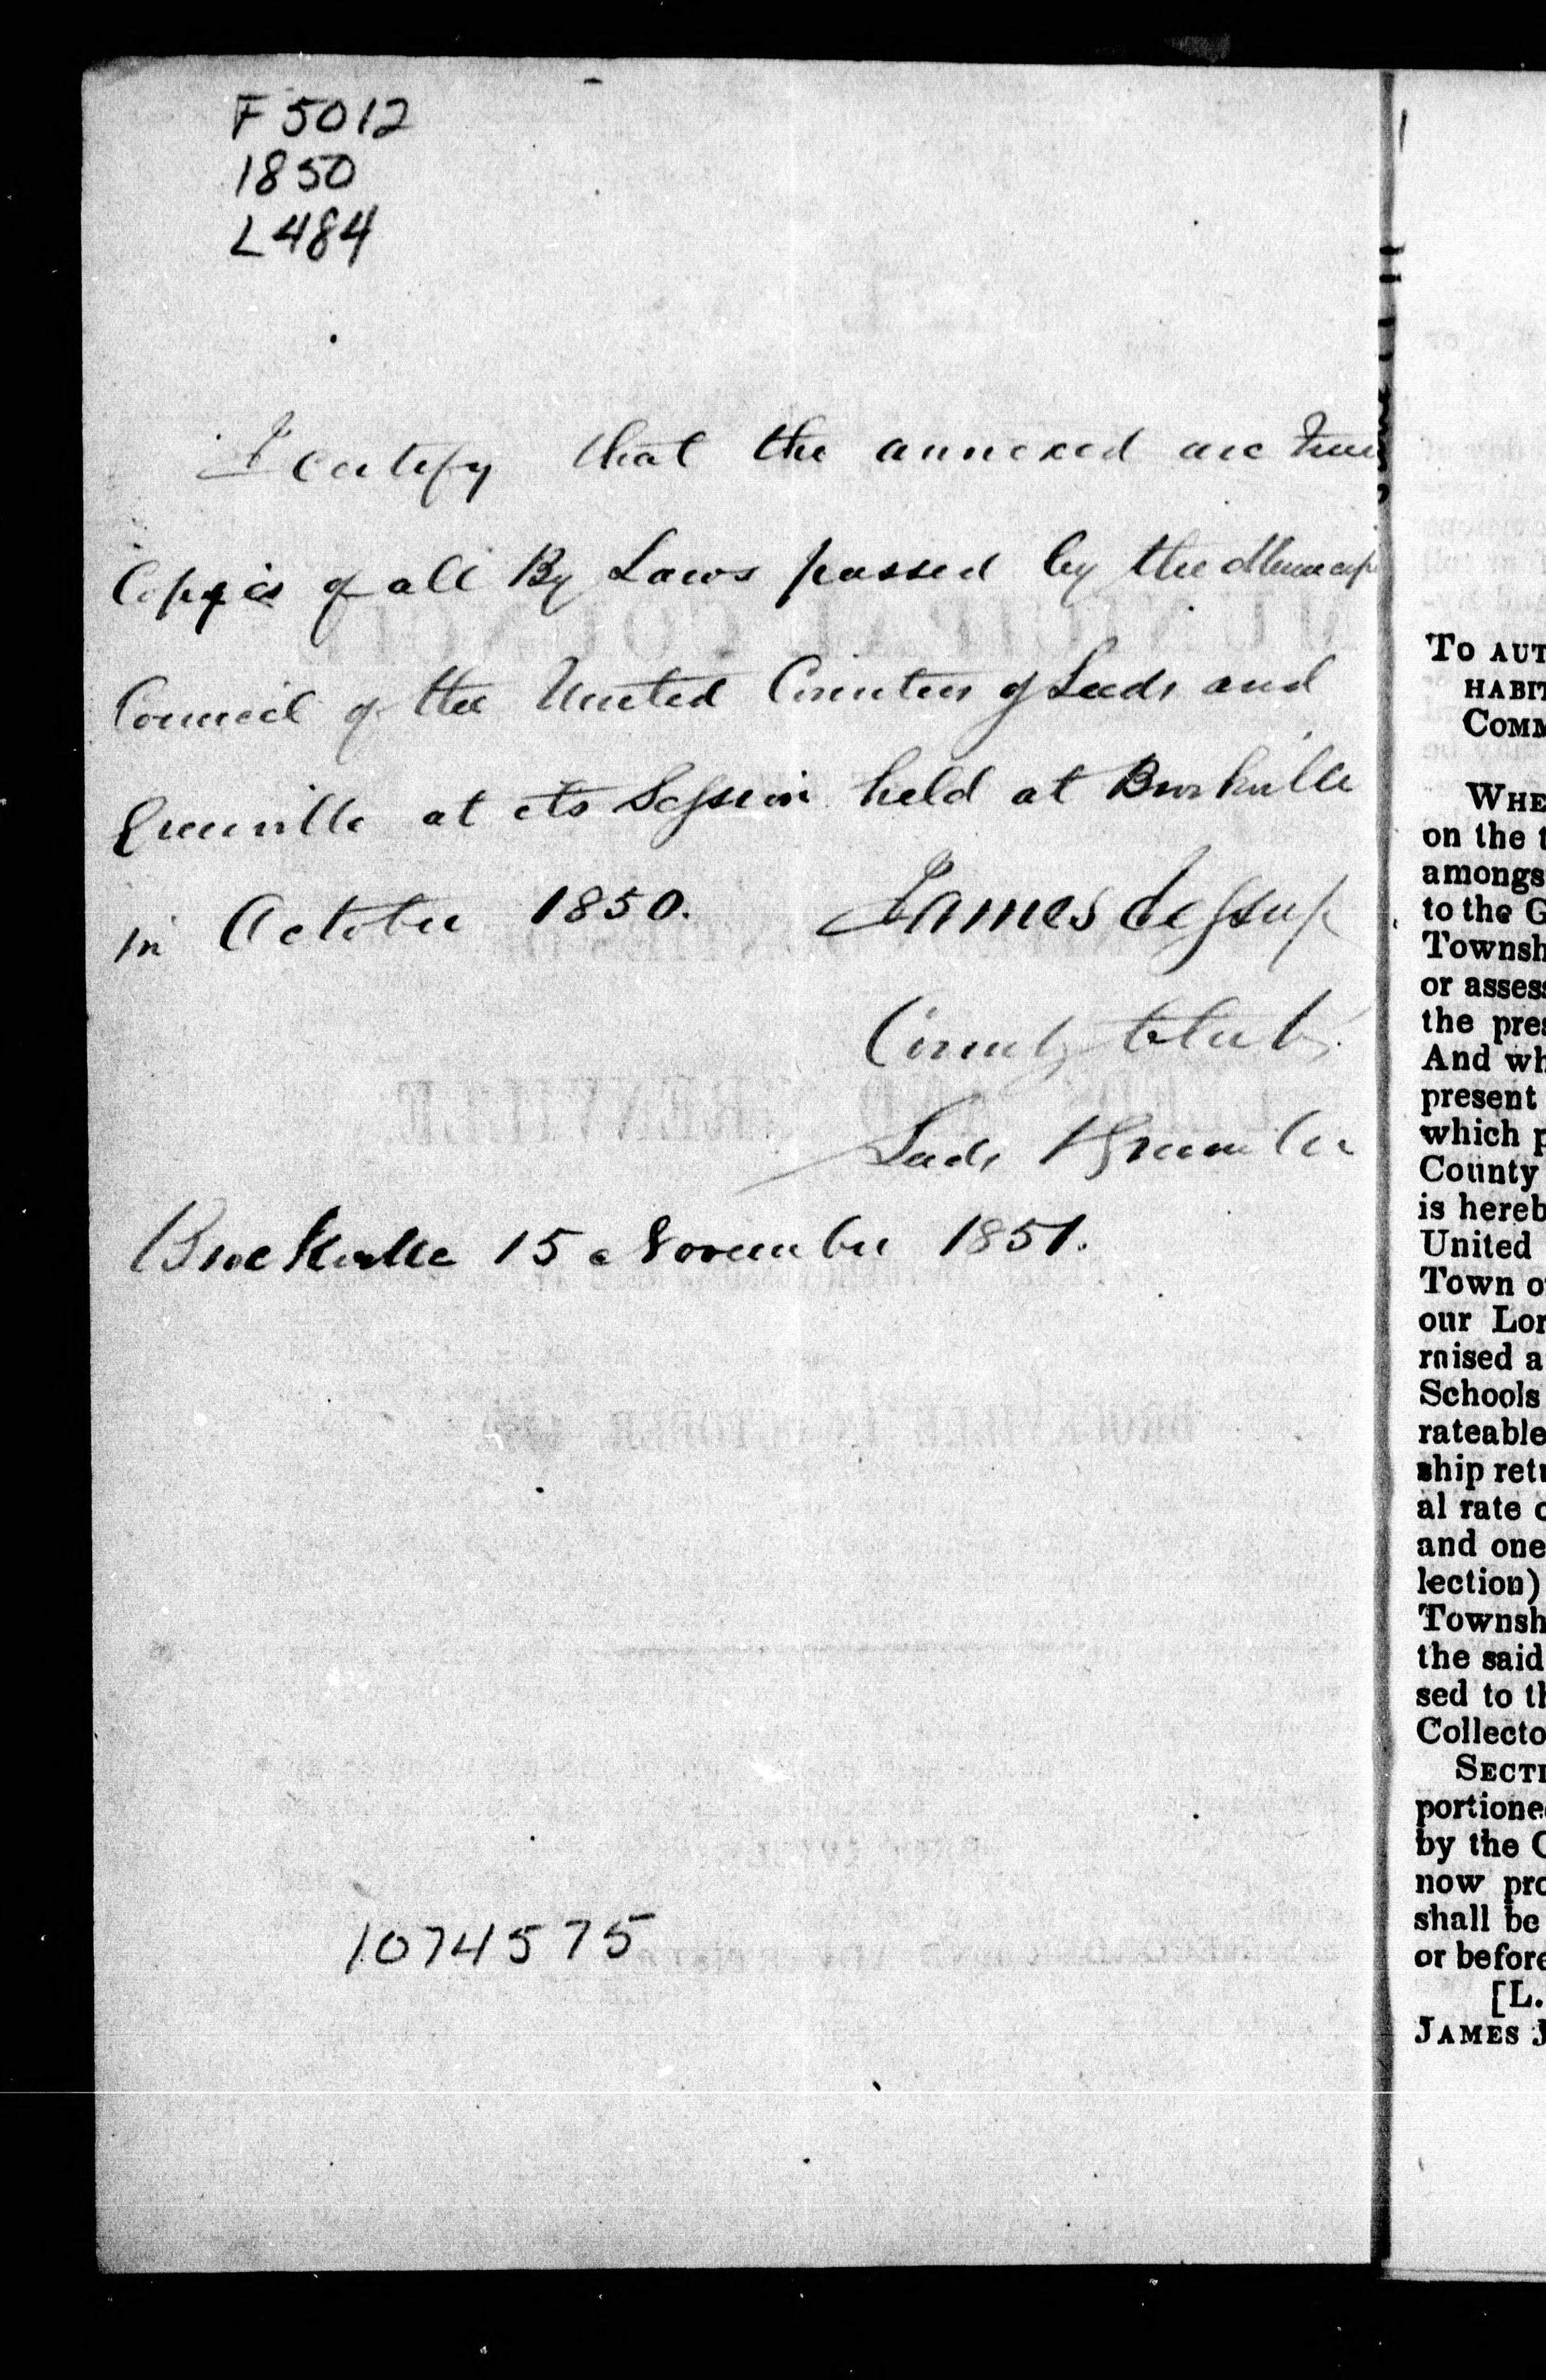 F5012
1850
L484
I certify that the annexed are true
Copies of all By Laws passed by the Municip
Council of the United Counties of Leeds and
Grenville at its Session held at Brockville
in October 1850. James Jessup
County Clerk
Leeds & Grenville
Brockville 15 November 1851.
1074575
TO AUT
HABIT
COMM
WHE
on the t
amongs
to the G
Townsh
or assess
the pres
And wh
present
which p
County
is hereb
United
Town o
our Lor
raised a
Schools
rateable
ship retu
al rate o
and one
lection)
Townsh
the said
sed to th
Collecto
SECTI
portione
by the C
now pro
shall be
or before
[L.
JAMES J